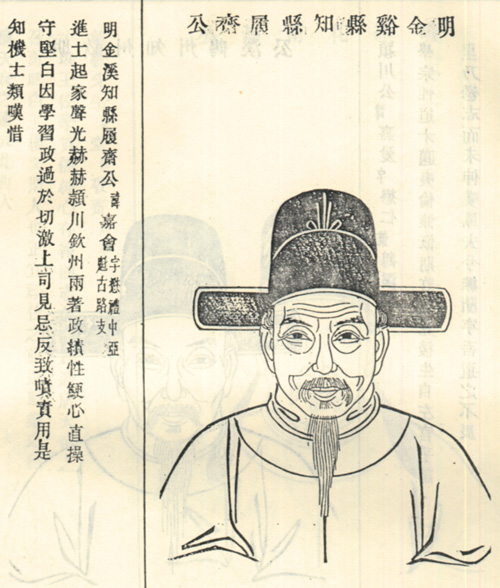 明金谿縣知縣履齋公
明金溪知縣履齋公諱嘉會字懋禮中亞魁古路支
進士起家聲光赫赫潁川欽州兩著政績性鯁心直操
守堅白因學習政過於切激上司見忌反致嗔責用是
知機士類嘆惜